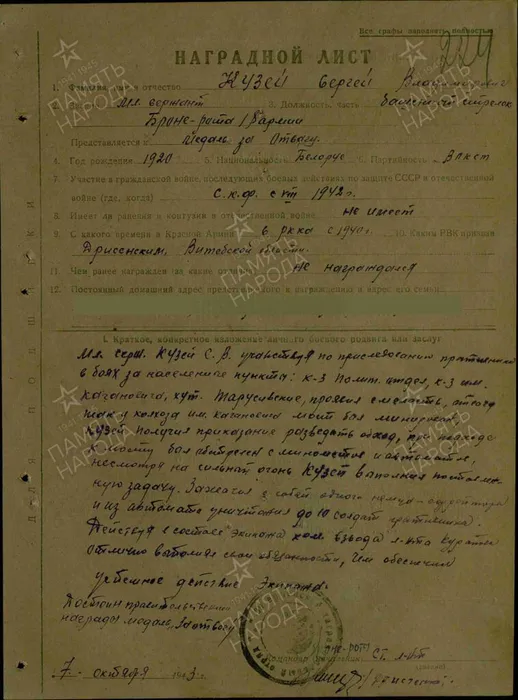 Все графы заполнять полностью
224
НАГРАДНОЙ ЛИСТ
1. Фамилия, имя и отчество Кузей Сергей Владимирович
мл. сержант 3. Должность, часть
Броне-рота 1 армии
Представляется к Медаль за Отвагу.
4. Год рождения 1920 5. Национальность Белорус 6. Партийность
7. Участие в гражданской войне, последующих боевых действиях по защите СССР и отечественной
войне (где, когда) с.к.ф. с VIII 1942г.
8. Имеет ли ранения и контузии в отечественной войне не имеет
9. С какого времени в Красной Армии в РККА с 1940г. 10. Каким РВК призван
Дрисенским, Витебской области.
11. Чем ранее награжден (за какие отличия) не награждался
12. Постоянный домашний адрес представляемого к награждению и адрес его семьи
I. Краткое, конкретное изложение личного боевого подвига или заслуг
Мл. серж. Кузей С. В. участвуя по преследованию противника
в боях за населенные пункты: к-з Полит. отдел, к-з им.
Кагановича, хут. проявил смелость,
колхоза им. Кагановича мост был минирован
Кузей получил приказание разведать обход, при подходе
к мосту был обстрелян с миномета и автоматов,
несмотря на сильный огонь Кузей выполнил поставлен-
ную задачу.
и из автомата уничтожил до 10 солдат противника.
Действуя в составе экипажа ком. взвода л-нта
отлично выполнял свои обязанности, чем обеспечил
успешное действие экипажа.
Достоин правительственной
награды медаль "За отвагу"
Командир Броне-роты Ст. л-нт
7 октября 1943 г.
ПАМЯТЬ НАРОДА
ПАМЯТЬ НАРОДА
ПАМЯТЬ НАРОДА
ПАМЯТЬ НАРОДА